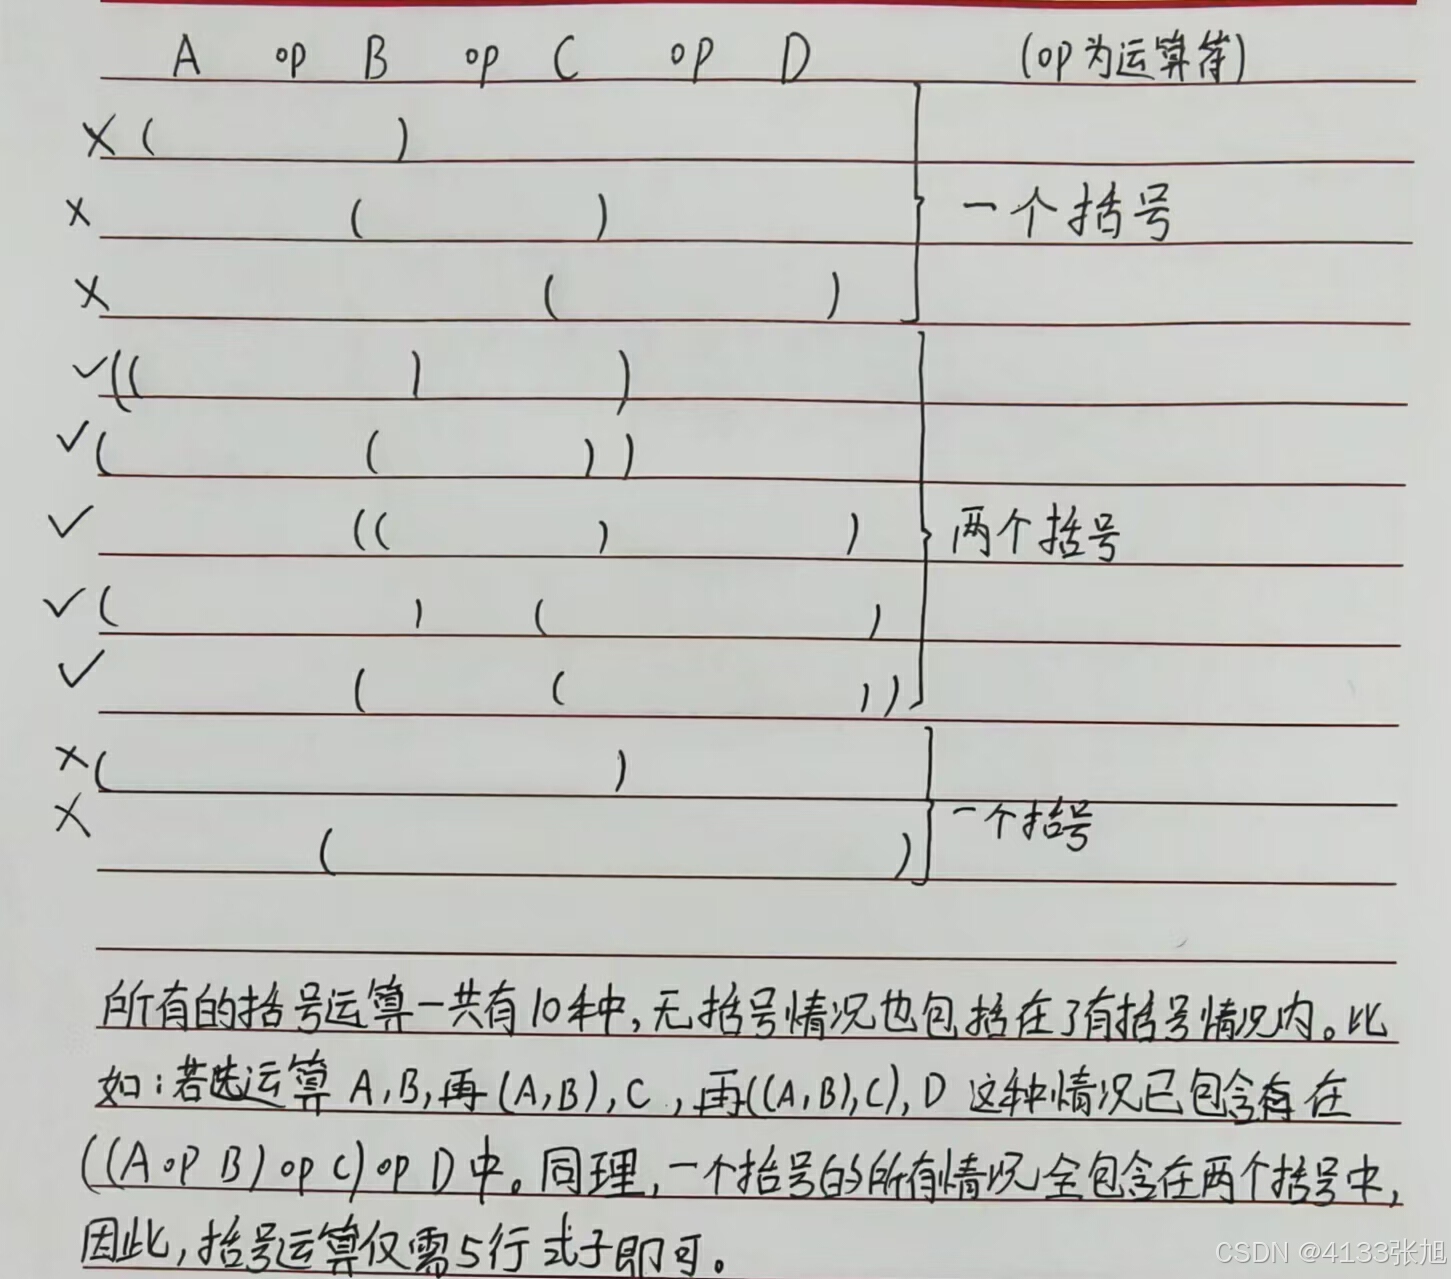 A op B op C op D (op为运算符)
×( )
× ( ) 一个括号
× ( )
✓(( ) )
✓( ( ))
✓ (( ) ) 两个括号
✓( ) ( )
✓ ( ( ))
×( )
× ( ) 一个括号
所有的括号运算一共有10种中,无括号情况也包括在了有括号情况内。比
如:若选运算 A,B,再(A,B),C,再((A,B),C),D 这种情况已包含存在
((A op B) op C) op D中。同理,一个括号的所有情况全包含在两个括号中,
因此,括号运算仅需5行式子即可。
CSDN @4133张旭